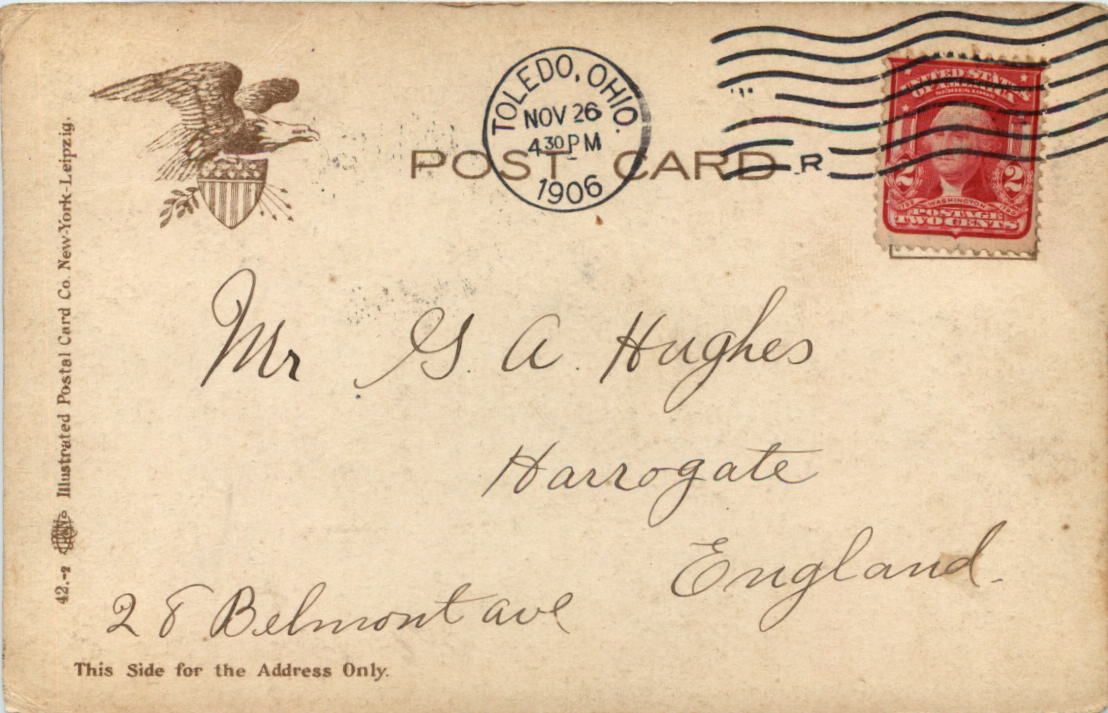 TOLEDO, OHIO.
NOV 26
4 30 PM
1906
POST CARD
R
UNITED STATES
OF AMERICA
SERIES 1902
2 2
WASHINGTON
POSTAGE
TWO CENTS
Illustrated Postal Card Co. New-York-Leipzig.
42.-2
Mr G. A. Hughes
Harrogate
England.
28 Belmont ave
This Side for the Address Only.